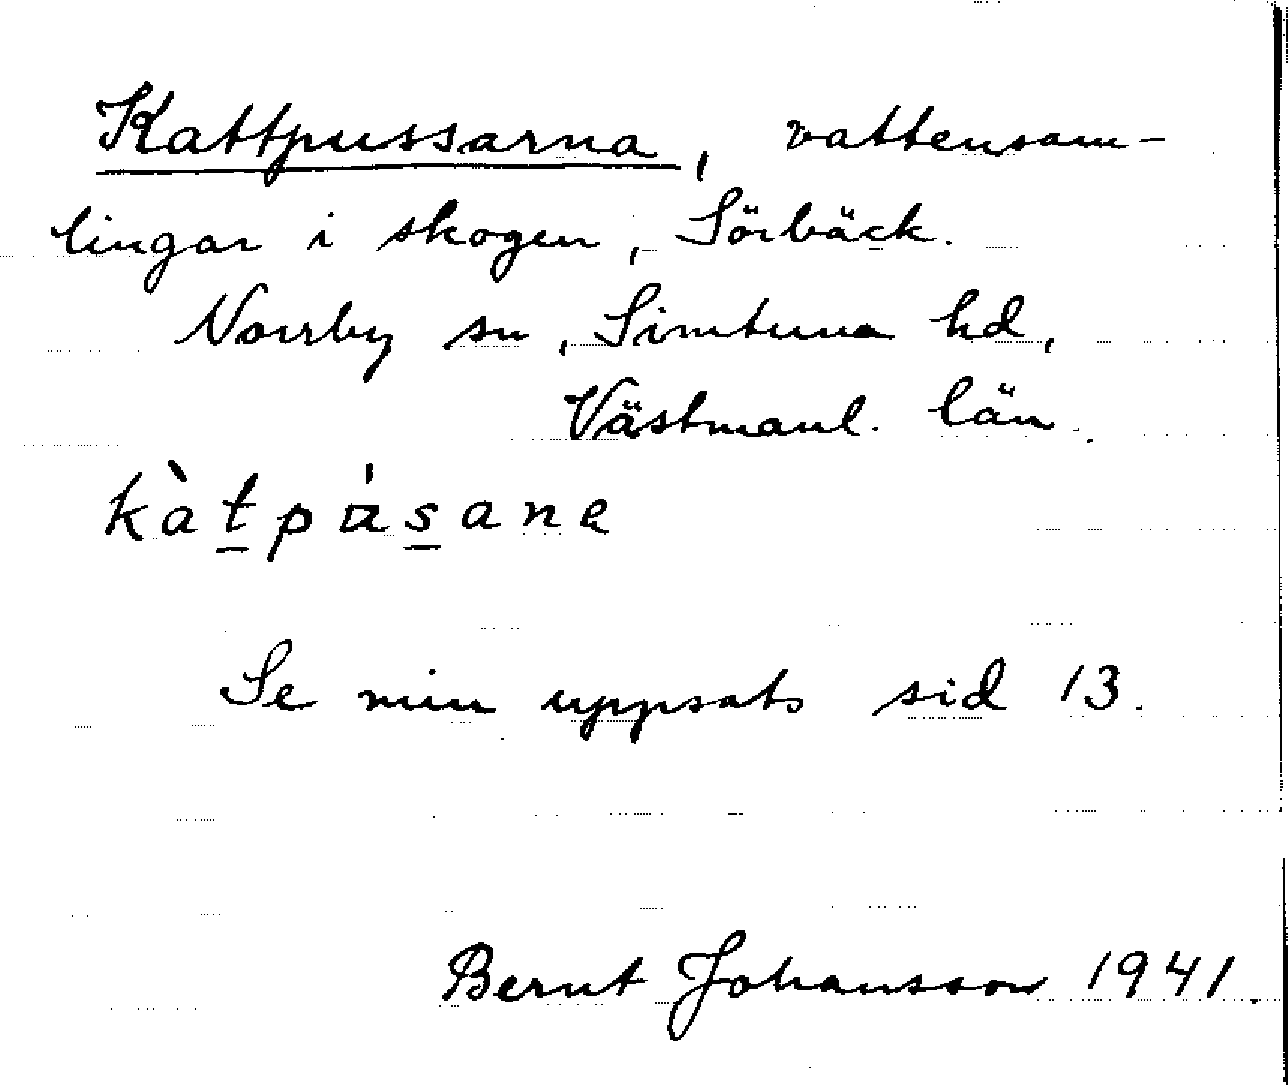 Kattpussarna, vattensam-
lingar i skogen, Sörbäck.
Norrby sn, Simtuna hd,
Västmanl. län.
kàtpásane
Se min uppsats sid 13.
Bernt Johansson 1941.